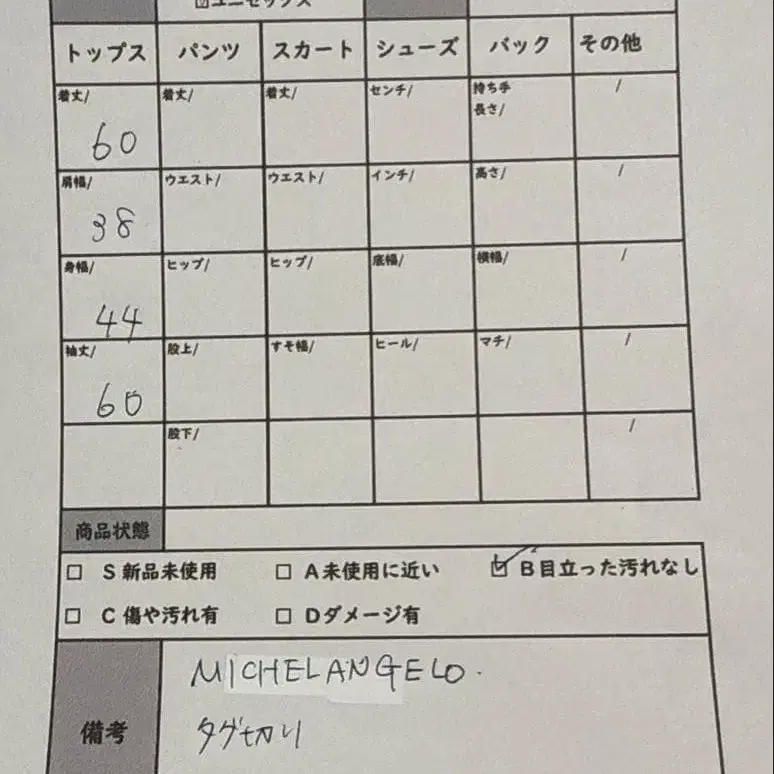 ☑ユニセックス
トップス パンツ スカート シューズ バック その他
着丈/ 着丈/ 着丈/ センチ/ 持ち手 /
長さ/
60
肩幅/ ウエスト/ ウエスト/ インチ/ 高さ/ /
38
身幅/ ヒップ/ ヒップ/ 底幅/ 横幅/ /
44
袖丈/ 股上/ すそ幅/ ヒール/ マチ/ /
60
股下/ /
商品状態
☐ S 新品未使用 ☐ A未使用に近い ☑ B目立った汚れなし
☐ C 傷や汚れ有 ☐ Dダメージ有
MICHELANGELO.
備考
タグ切り